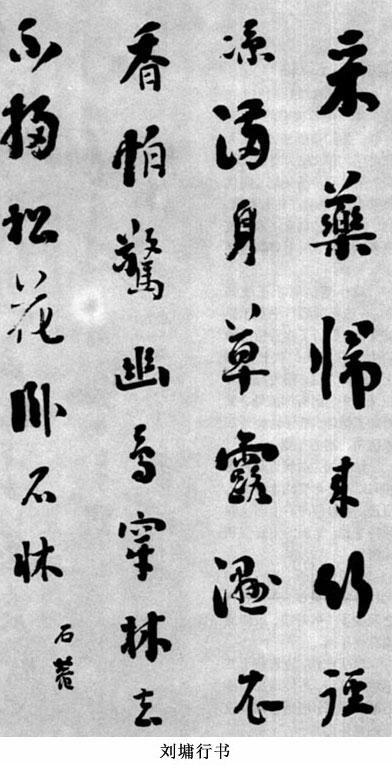 采藥歸来竹徑
涼滿身草露濕衣
香怕驚幽鳥穿林去
不掃松花卧石牀
石菴
刘墉行书